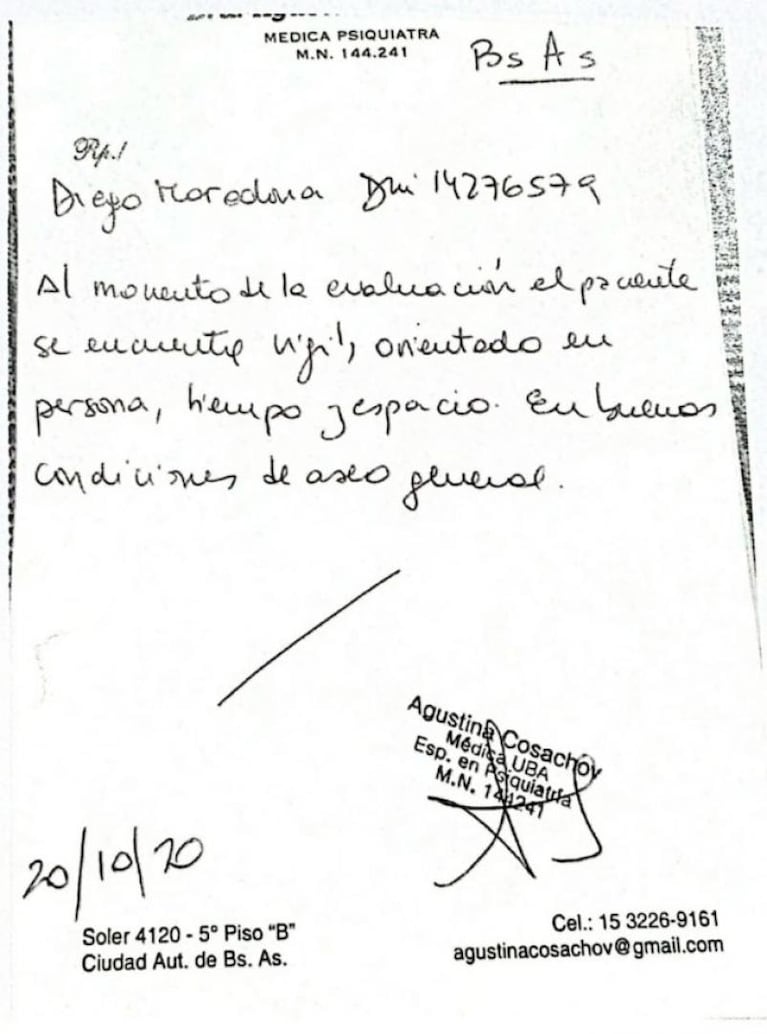 MEDICA PSIQUIATRA
M.N. 144.241
Bs As
Rp./
Diego Maradona Dni 14276579
Al momento de la evaluación el paciente
se encuentra vigil, orientado en
persona, tiempo y espacio. En buenas
condiciones de aseo general.
Agustina Cosachov
Médica UBA
Esp. en Psiquiatría
M.N. 144241
20/10/20
Soler 4120 - 5º Piso "B"
Ciudad Aut. de Bs. As.
Cel.: 15 3226-9161
agustinacosachov@gmail.com